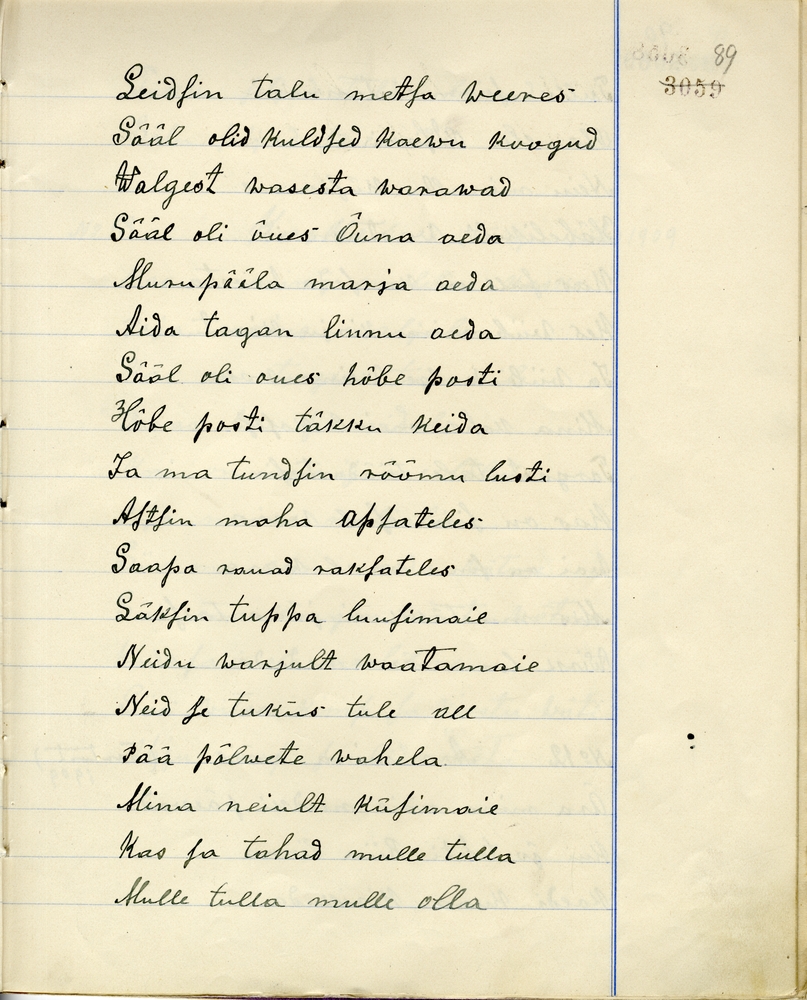 89
3059
Leidsin talu metsa weeres
Sääl olid kuldsed kaewu koogud
Walgest wasesta warawad
Sääl oli õues Õuna aeda
Murupääla marja aeda
Aida tagan linnu aeda
Sääl oli oues hõbe posti
Hõbe posti täkku keida
Ja ma tundsin rõõmu lusti
Astsin maha apsateles
Saapa rauad raksateles
Läksin tuppa luusimaie
Neidu warjult waatamaie
Neid se tukus tule all
Pää põlwete wahela
Mina neiult küsimaie
Kas sa tahad mulle tulla
Mulle tulla mulle olla